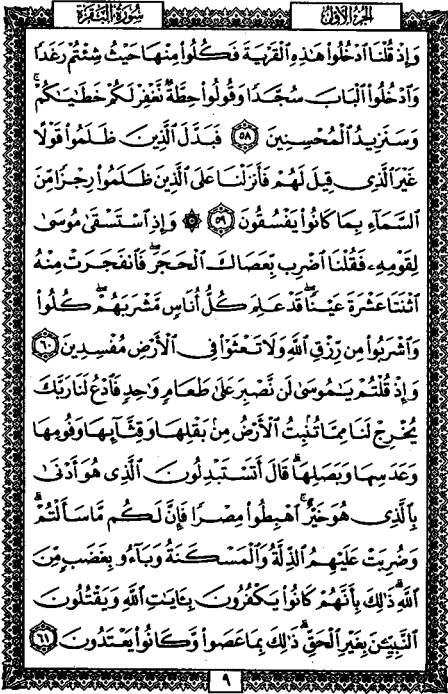 سُورَةُ البَقَرَة
الجزء الأول
وَإِذْ قُلْنَا ٱدْخُلُوا۟ هَـٰذِهِ ٱلْقَرْيَةَ فَكُلُوا۟ مِنْهَا حَيْثُ شِئْتُمْ رَغَدًا
وَٱدْخُلُوا۟ ٱلْبَابَ سُجَّدًا وَقُولُوا۟ حِطَّةٌ نَّغْفِرْ لَكُمْ خَطَـٰيَـٰكُمْ ۚ
وَسَنَزِيدُ ٱلْمُحْسِنِينَ ٥٨ فَبَدَّلَ ٱلَّذِينَ ظَلَمُوا۟ قَوْلًا
غَيْرَ ٱلَّذِى قِيلَ لَهُمْ فَأَنزَلْنَا عَلَى ٱلَّذِينَ ظَلَمُوا۟ رِجْزًا مِّنَ
ٱلسَّمَآءِ بِمَا كَانُوا۟ يَفْسُقُونَ ٥٩ ۞ وَإِذِ ٱسْتَسْقَىٰ مُوسَىٰ
لِقَوْمِهِۦ فَقُلْنَا ٱضْرِب بِّعَصَاكَ ٱلْحَجَرَ ۖ فَٱنفَجَرَتْ مِنْهُ
ٱثْنَتَا عَشْرَةَ عَيْنًا ۖ قَدْ عَلِمَ كُلُّ أُنَاسٍ مَّشْرَبَهُمْ ۖ كُلُوا۟
وَٱشْرَبُوا۟ مِن رِّزْقِ ٱللَّهِ وَلَا تَعْثَوْا۟ فِى ٱلْأَرْضِ مُفْسِدِينَ ٦٠
وَإِذْ قُلْتُمْ يَـٰمُوسَىٰ لَن نَّصْبِرَ عَلَىٰ طَعَامٍ وَٰحِدٍ فَٱدْعُ لَنَا رَبَّكَ
يُخْرِجْ لَنَا مِمَّا تُنۢبِتُ ٱلْأَرْضُ مِنۢ بَقْلِهَا وَقِثَّآئِهَا وَفُومِهَا
وَعَدَسِهَا وَبَصَلِهَا ۖ قَالَ أَتَسْتَبْدِلُونَ ٱلَّذِى هُوَ أَدْنَىٰ
بِٱلَّذِى هُوَ خَيْرٌ ۚ ٱهْبِطُوا۟ مِصْرًا فَإِنَّ لَكُم مَّا سَأَلْتُمْ ۗ
وَضُرِبَتْ عَلَيْهِمُ ٱلذِّلَّةُ وَٱلْمَسْكَنَةُ وَبَآءُو بِغَضَبٍ مِّنَ
ٱللَّهِ ۗ ذَٰلِكَ بِأَنَّهُمْ كَانُوا۟ يَكْفُرُونَ بِـَٔايَـٰتِ ٱللَّهِ وَيَقْتُلُونَ
ٱلنَّبِيِّـۧنَ بِغَيْرِ ٱلْحَقِّ ۗ ذَٰلِكَ بِمَا عَصَوا۟ وَّكَانُوا۟ يَعْتَدُونَ ٦١
٩